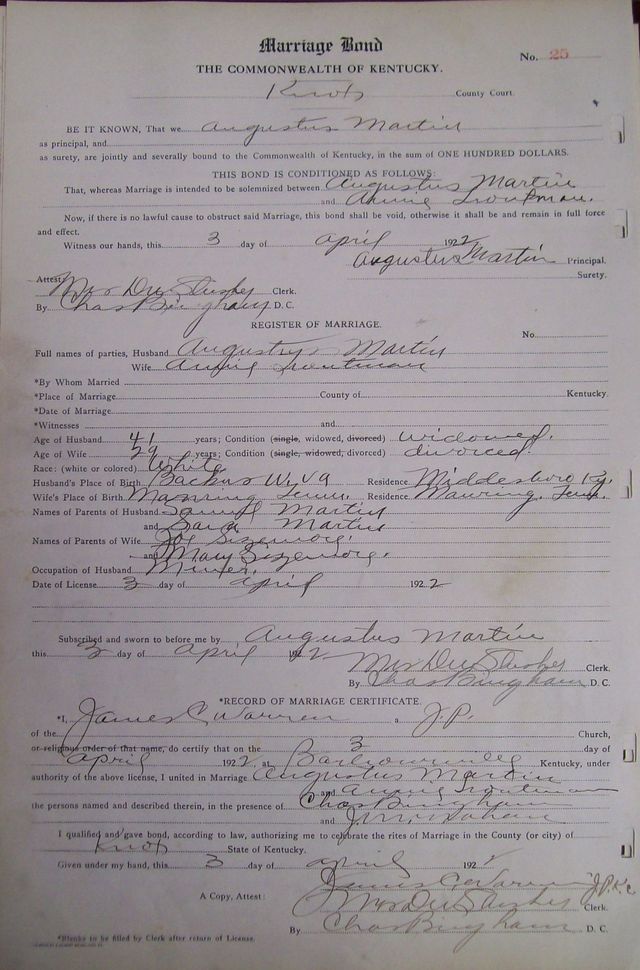 Marriage Bond
No. 25
THE COMMONWEALTH OF KENTUCKY.
Knox County Court.
BE IT KNOWN, That we Augustus Martin
as principal, and
as surety, are jointly and severally bound to the Commonwealth of Kentucky, in the sum of ONE HUNDRED DOLLARS.
THIS BOND IS CONDITIONED AS FOLLOWS:
That, whereas Marriage is intended to be solemnized between Augustus Martin
and Annie Troutman.
Now, if there is no lawful cause to obstruct said Marriage, this bond shall be void, otherwise it shall be and remain in full force
and effect.
Witness our hands, this 3 day of april 1922
Augustus Martin Principal.
Surety.
Attest: Mrs Dru Slusher Clerk.
By Chas Bingham D. C.
REGISTER OF MARRIAGE.
No.
Full names of parties, Husband Augustus Martin
Wife Annie Troutman
*By Whom Married
*Place of Marriage County of Kentucky.
*Date of Marriage
*Witnesses and
Age of Husband 41 years; Condition (single, widowed, divorced) widowed.
Age of Wife 29 years; Condition (single, widowed, divorced) divorced
Race: (white or colored) White
Husband's Place of Birth Backus W. Va Residence Middlesboro Ky.
Wife's Place of Birth Manring Tenn. Residence Manring, Tenn.
Names of Parents of Husband Saml Martin
and Sara Martin
Names of Parents of Wife Joe Sizemore.
and Mary Sizemore.
Occupation of Husband Miner.
Date of License 3 day of april 1922
Subscribed and sworn to before me by Augustus Martin
this 3 day of april 192 2
Mrs Dru Slusher Clerk.
By Chas Bingham D. C.
*RECORD OF MARRIAGE CERTIFICATE.
*I, James C Warren a J.P.
of the Church,
or religious order of that name, do certify that on the 3 day of
april 1922, at Barbourville Kentucky, under
authority of the above license, I united in Marriage Augustus Martin
and Annie Troutman
the persons named and described therein, in the presence of Chas Bingham
and
I qualified and gave bond, according to law, authorizing me to celebrate the rites of Marriage in the County (or city) of
Knox State of Kentucky.
Given under my hand, this 3 day of april 1922
James C Warren J.P.K.C
A Copy, Attest: Mrs Dru Slusher Clerk.
By Chas Bingham D. C.
*Blanks to be filled by Clerk after return of License.